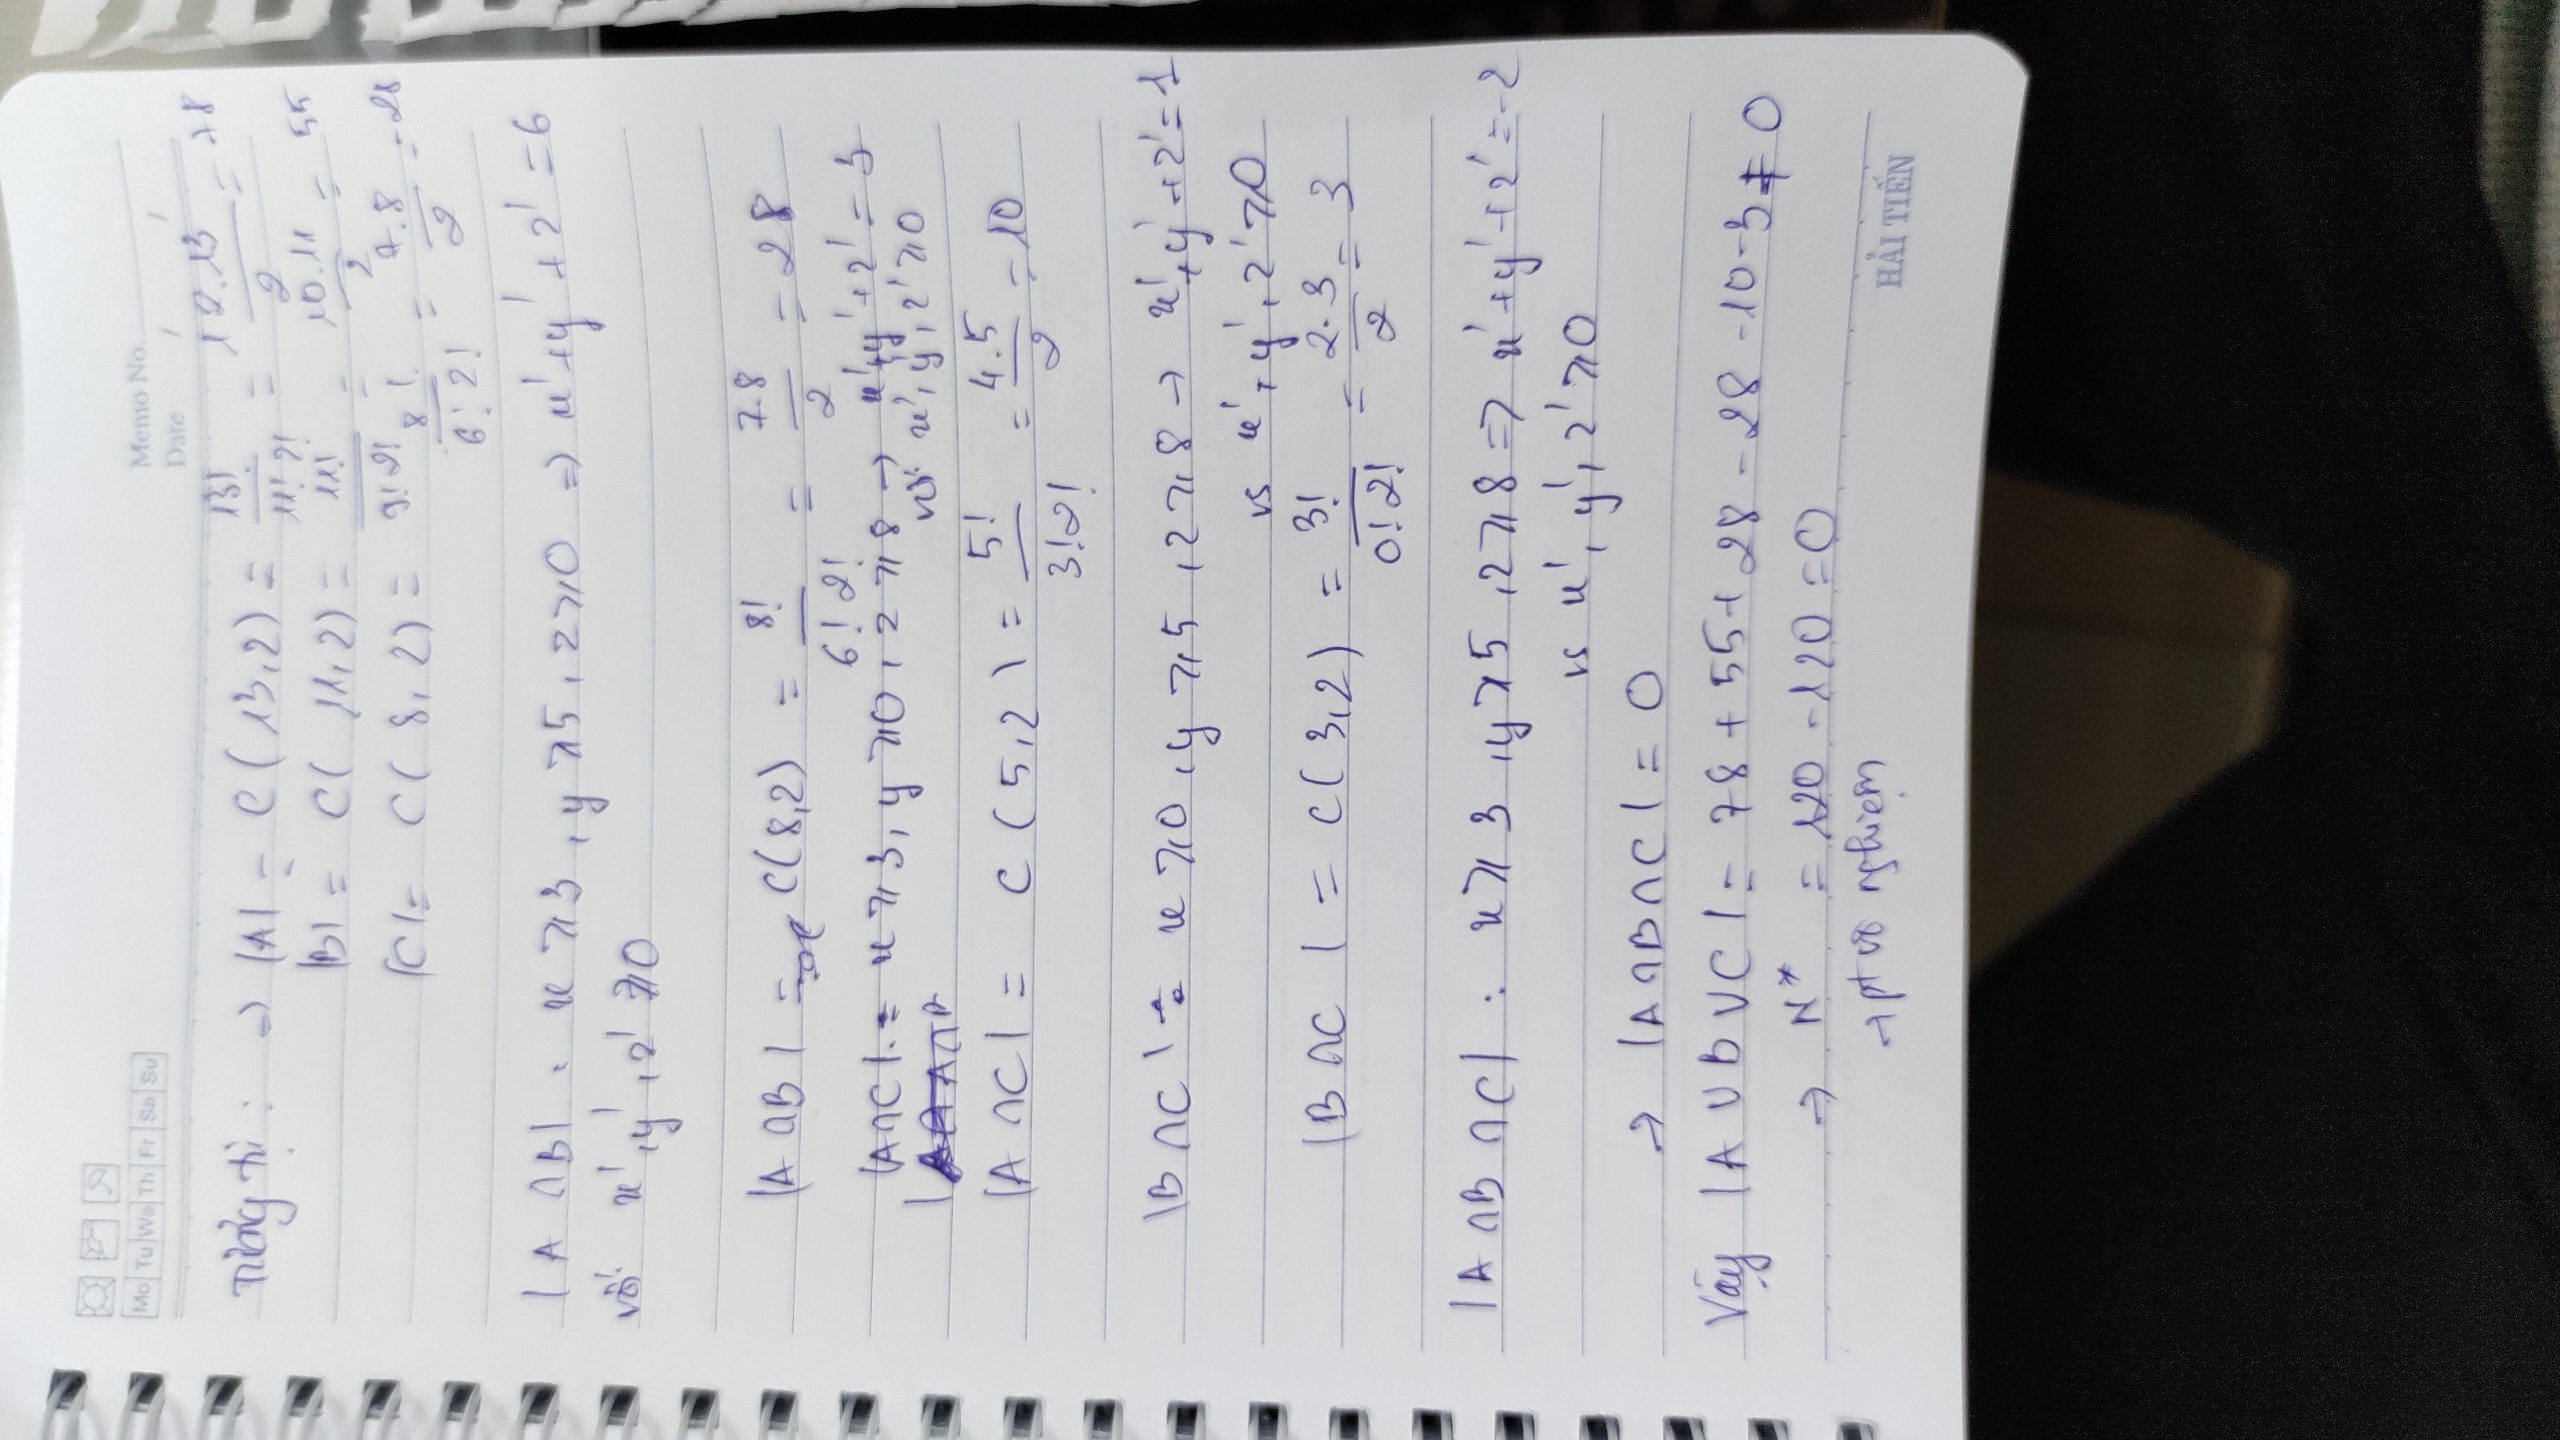 Mo Tu We Th Fr Sa Su
Memo No.
Date / /
Tương tự : ⇒ |A| = C(13,2) = 13!/11!2! = 12.13/2 = 78
|B| = C(11,2) = 11!/9!2! = 10.11/2 = 55
|C| = C(8,2) = 8!/6!2! = 7.8/2 = 28
|A∩B| : x ⩾ 3, y ⩾ 5, z ⩾ 0 ⇒ x' + y' + z' = 6
với x', y', z' ⩾ 0
|A∩B| = C(8,2) = 8!/6!2! = 7.8/2 = 28
|A∩C| : x ⩾ 3, y ⩾ 0, z ⩾ 8 → x' + y' + z' = 3
với x', y', z' ⩾ 0
|A∩C| = C(5,2) = 5!/3!2! = 4.5/2 = 10
|B∩C| : x ⩾ 0, y ⩾ 5, z ⩾ 8 → x' + y' + z' = 1
vs x', y', z' ⩾ 0
|B∩C| = C(3,2) = 3!/0!2! = 2.3/2 = 3
|A∩B∩C| : x ⩾ 3, y ⩾ 5, z ⩾ 8 ⇒ x' + y' + z' = -2
vs x', y', z' ⩾ 0
→ |A∩B∩C| = 0
Vậy |A∪B∪C| = 78 + 55 + 28 - 28 - 10 - 3 + 0
→ N* = 120 - 120 = 0
→ pt vô nghiệm
HẢI TIẾN